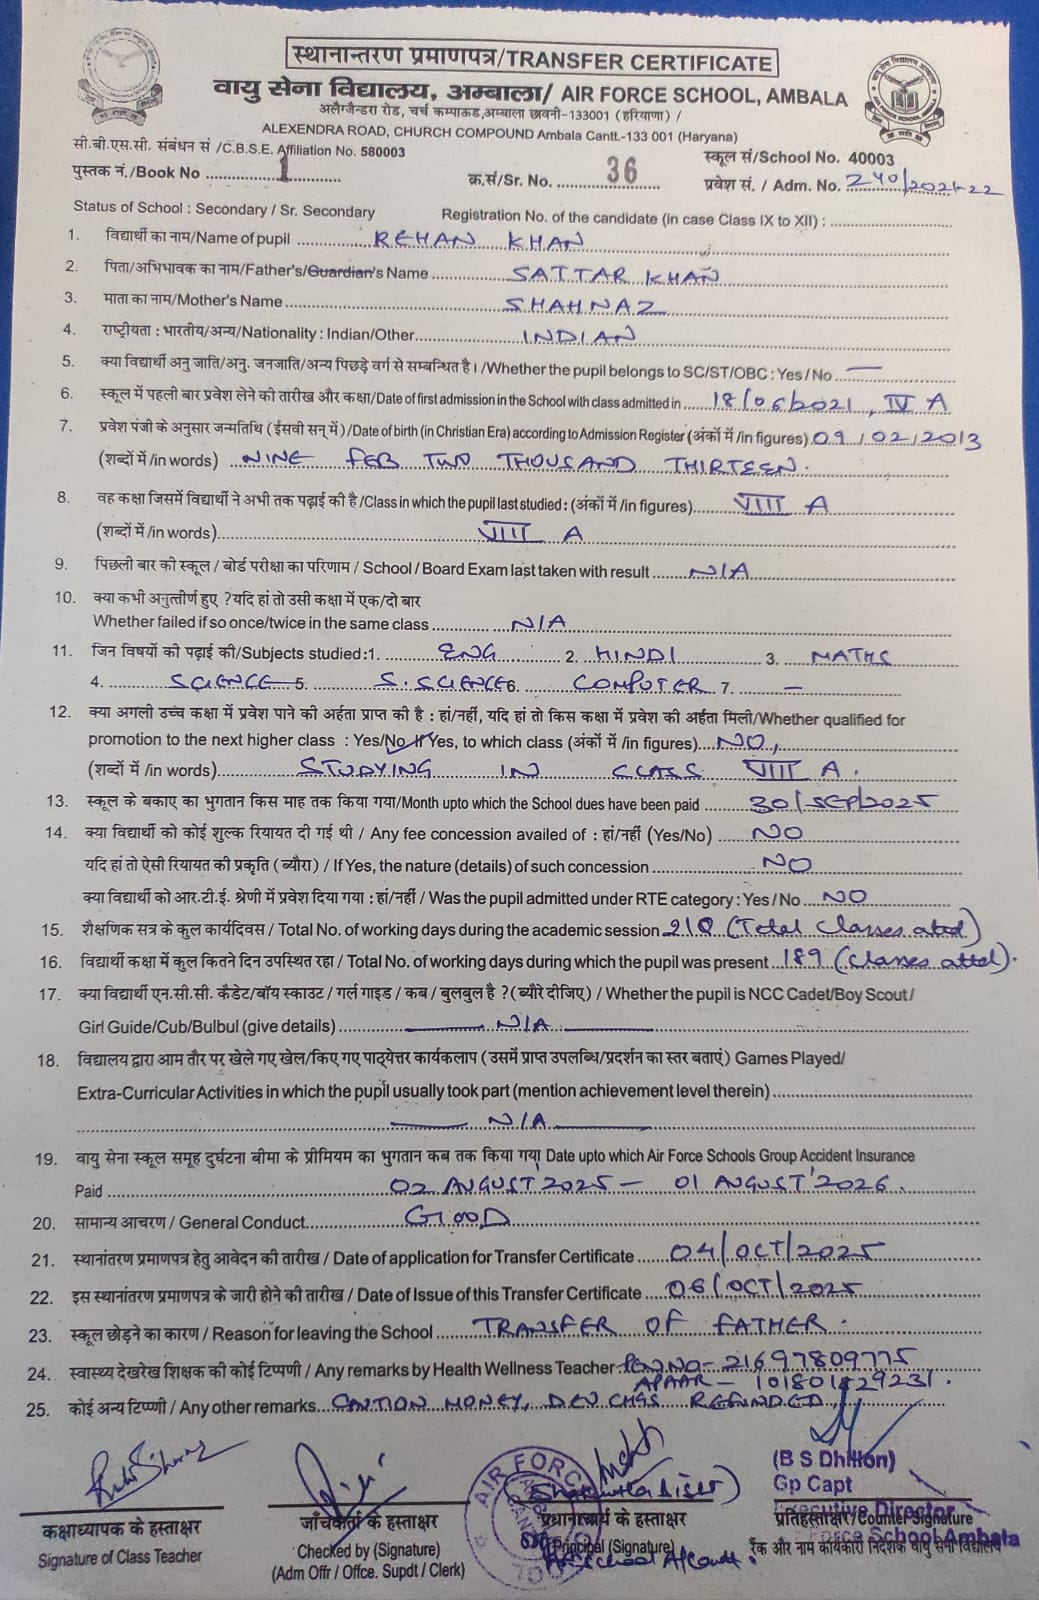 स्थानान्तरण प्रमाणपत्र/TRANSFER CERTIFICATE
वायु सेना विद्यालय, अम्बाला/ AIR FORCE SCHOOL, AMBALA
अलैग्जैन्डरा रोड, चर्च कम्पाऊड,अम्बाला छावनी-133001 (हरियाणा) /
ALEXENDRA ROAD, CHURCH COMPOUND Ambala Cantt.-133 001 (Haryana)
सी.बी.एस.सी. संबंधन सं /C.B.S.E. Affiliation No. 580003
स्कूल सं/School No. 40003
पुस्तक नं./Book No 1 क्र.सं/Sr. No. 36 प्रवेश सं. / Adm. No. 240/2021-22
Status of School : Secondary / Sr. Secondary Registration No. of the candidate (in case Class IX to XII) :
1. विद्यार्थी का नाम/Name of pupil REHAN KHAN
2. पिता/अभिभावक का नाम/Father's/Guardian's Name SATTAR KHAN
3. माता का नाम/Mother's Name SHAHNAZ
4. राष्ट्रीयता : भारतीय/अन्य/Nationality : Indian/Other INDIAN
5. क्या विद्यार्थी अनु जाति/अनु. जनजाति/अन्य पिछड़े वर्ग से सम्बन्धित है। /Whether the pupil belongs to SC/ST/OBC : Yes / No —
6. स्कूल में पहली बार प्रवेश लेने की तारीख और कक्षा/Date of first admission in the School with class admitted in 18/06/2021, IV A
7. प्रवेश पंजी के अनुसार जन्मतिथि (ईसवी सन् में) /Date of birth (in Christian Era) according to Admission Register (अंकों में /in figures) 09/02/2013
(शब्दों में /in words) NINE FEB TWO THOUSAND THIRTEEN.
8. वह कक्षा जिसमें विद्यार्थी ने अभी तक पढ़ाई की है /Class in which the pupil last studied : (अंकों में /in figures) VIII A
(शब्दों में /in words) VIII A
9. पिछली बार की स्कूल / बोर्ड परीक्षा का परिणाम / School / Board Exam last taken with result N/A
10. क्या कभी अनुत्तीर्ण हुए ?यदि हां तो उसी कक्षा में एक/दो बार
Whether failed if so once/twice in the same class N/A
11. जिन विषयों की पढ़ाई की/Subjects studied :1. ENG 2. HINDI 3. MATHS
4. SCIENCE 5. S. SCIENCE 6. COMPUTER 7. —
12. क्या अगली उच्च कक्षा में प्रवेश पाने की अर्हता प्राप्त की है : हां/नहीं, यदि हां तो किस कक्षा में प्रवेश की अर्हता मिली/Whether qualified for
promotion to the next higher class : Yes/No If Yes, to which class (अंकों में /in figures) NO,
(शब्दों में /in words) STUDYING IN CLASS VIII A.
13. स्कूल के बकाए का भुगतान किस माह तक किया गया/Month upto which the School dues have been paid 30/SEP/2025
14. क्या विद्यार्थी को कोई शुल्क रियायत दी गई थी / Any fee concession availed of : हां/नहीं (Yes/No) NO
यदि हां तो ऐसी रियायत की प्रकृति (ब्यौरा) / If Yes, the nature (details) of such concession NO
क्या विद्यार्थी को आर.टी.ई. श्रेणी में प्रवेश दिया गया : हां/नहीं / Was the pupil admitted under RTE category : Yes / No NO
15. शैक्षणिक सत्र के कुल कार्यदिवस / Total No. of working days during the academic session 210 (Total Classes attd)
16. विद्यार्थी कक्षा में कुल कितने दिन उपस्थित रहा / Total No. of working days during which the pupil was present 189 (Classes attd).
17. क्या विद्यार्थी एन.सी.सी. कैडेट/बॉय स्काउट / गर्ल गाइड / कब / बुलबुल है ? (ब्यौरे दीजिए) / Whether the pupil is NCC Cadet/Boy Scout /
Girl Guide/Cub/Bulbul (give details) N/A
18. विद्यालय द्वारा आम तौर पर खेले गए खेल/किए गए पाठ्येत्तर कार्यकलाप (उसमें प्राप्त उपलब्धि/प्रदर्शन का स्तर बताएं) Games Played/
Extra-Curricular Activities in which the pupil usually took part (mention achievement level therein)
N/A
19. वायु सेना स्कूल समूह दुर्घटना बीमा के प्रीमियम का भुगतान कब तक किया गया Date upto which Air Force Schools Group Accident Insurance
Paid 02 AUGUST 2025 – 01 AUGUST 2026.
20. सामान्य आचरण / General Conduct GOOD
21. स्थानांतरण प्रमाणपत्र हेतु आवेदन की तारीख / Date of application for Transfer Certificate 04/OCT/2025
22. इस स्थानांतरण प्रमाणपत्र के जारी होने की तारीख / Date of Issue of this Transfer Certificate 06/OCT/2025
23. स्कूल छोड़ने का कारण / Reason for leaving the School TRANSFER OF FATHER.
24. स्वास्थ्य देखरेख शिक्षक की कोई टिप्पणी / Any remarks by Health Wellness Teacher Pen No- 21697809775
APAAR –
25. कोई अन्य टिप्पणी / Any other remarks CAUTION MONEY, DEV CHGS REFUNDED
(B S Dhillon)
Gp Capt
Executive Director
Force School Ambala
AIR FORCE
कक्षाध्यापक के हस्ताक्षर
Signature of Class Teacher
जाँचकर्ता के हस्ताक्षर
Checked by (Signature)
(Adm Offr / Offce. Supdt / Clerk)
प्रधानाचार्य के हस्ताक्षर
(Principal (Signature)
प्रतिहस्ताक्षर/Counter Signature
रैंक और नाम कार्यकारी निदेशक वायु सेना विद्यालय